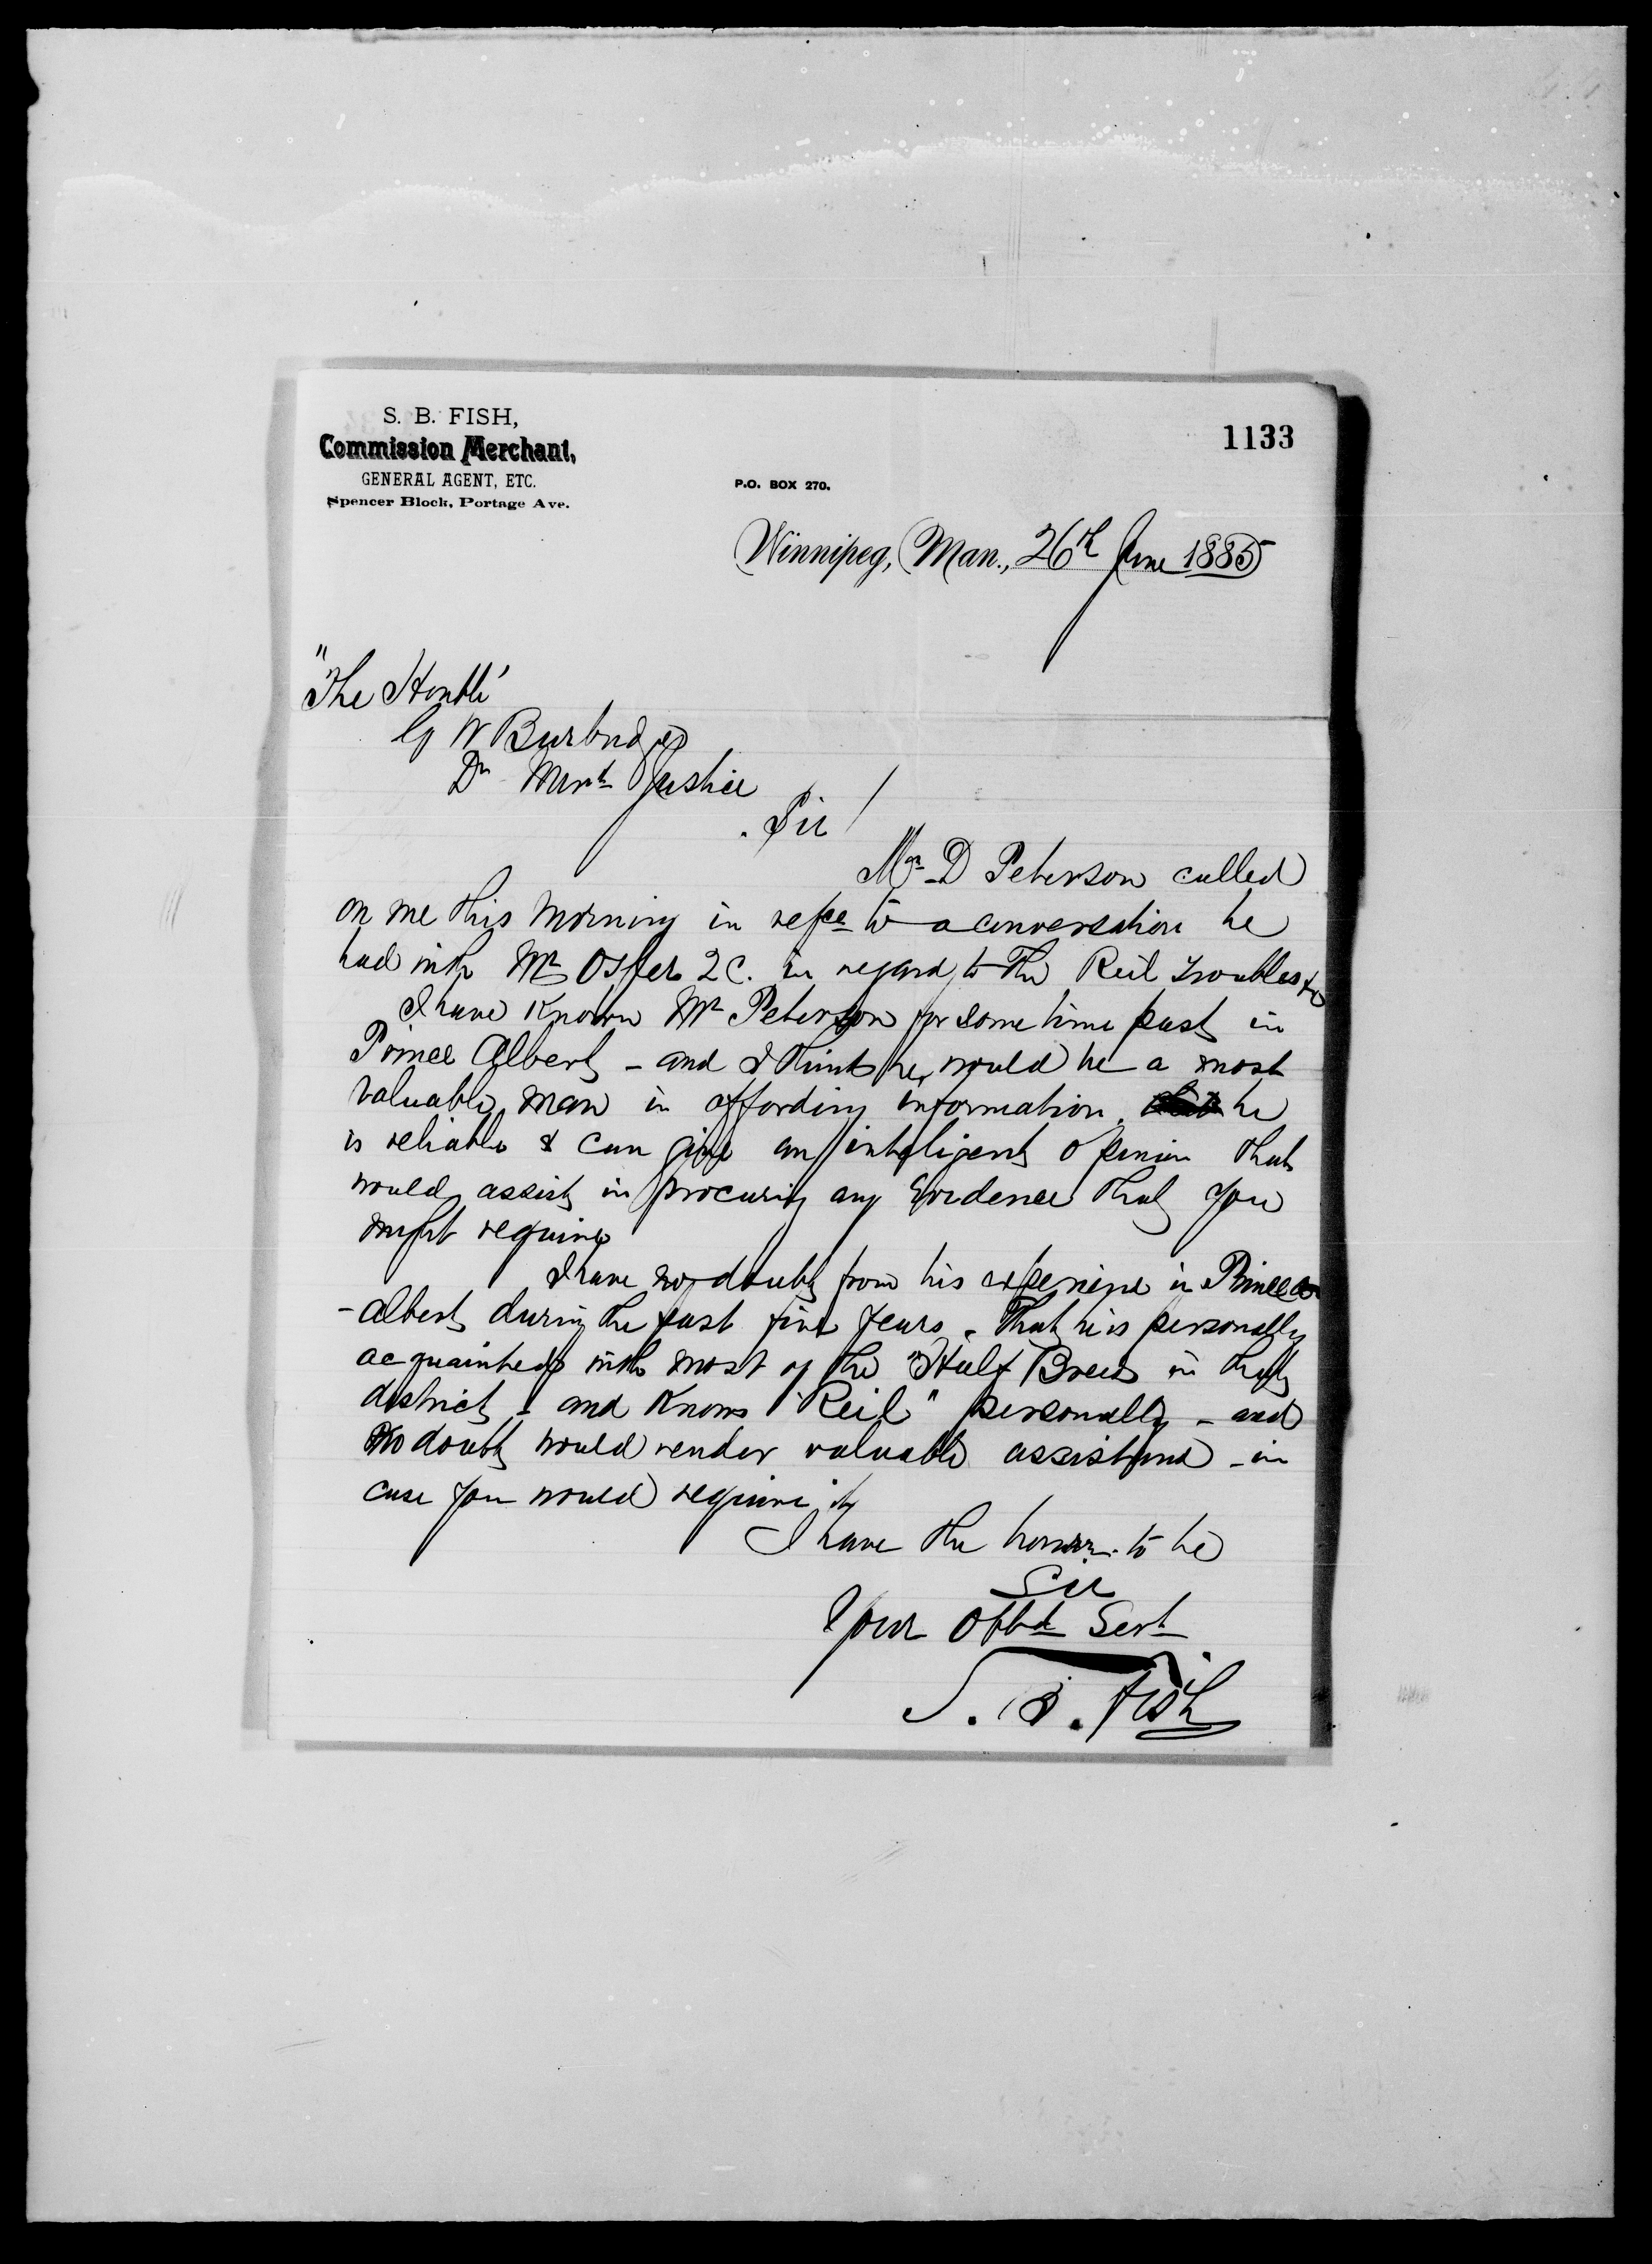 S. B. FISH,
Commission Merchant,
GENERAL AGENT, ETC.
Spencer Block, Portage Ave.
1133
P.O. BOX 270.
Winnipeg, Man., 26th June 1885
"The Honble'
G W Burbridge
Dr Minst Justice
Sir /
Mr D Peterson called
on me this morning in refce to a conversation he
had with Mr Osler Q C. in regard to the Reil troubles &c
I have known Mr Peterson for some time past in
Prince Albert - and I think he would be a most
valuable man in affording information, he
is reliable & can give an inteligent opinion that
would assist in procuring any Evidence that you
might require
I have no doubt from his experience in Prince
- Albert during the past five years - that he is personally
acquainted with most of the "Half Breeds in that
district - and knows "Reil" personally - and
no doubt would render valuable assistance - in
case you would require it
I have the honour to be
Sir
Your Obbdt Servt
S. B. Fish